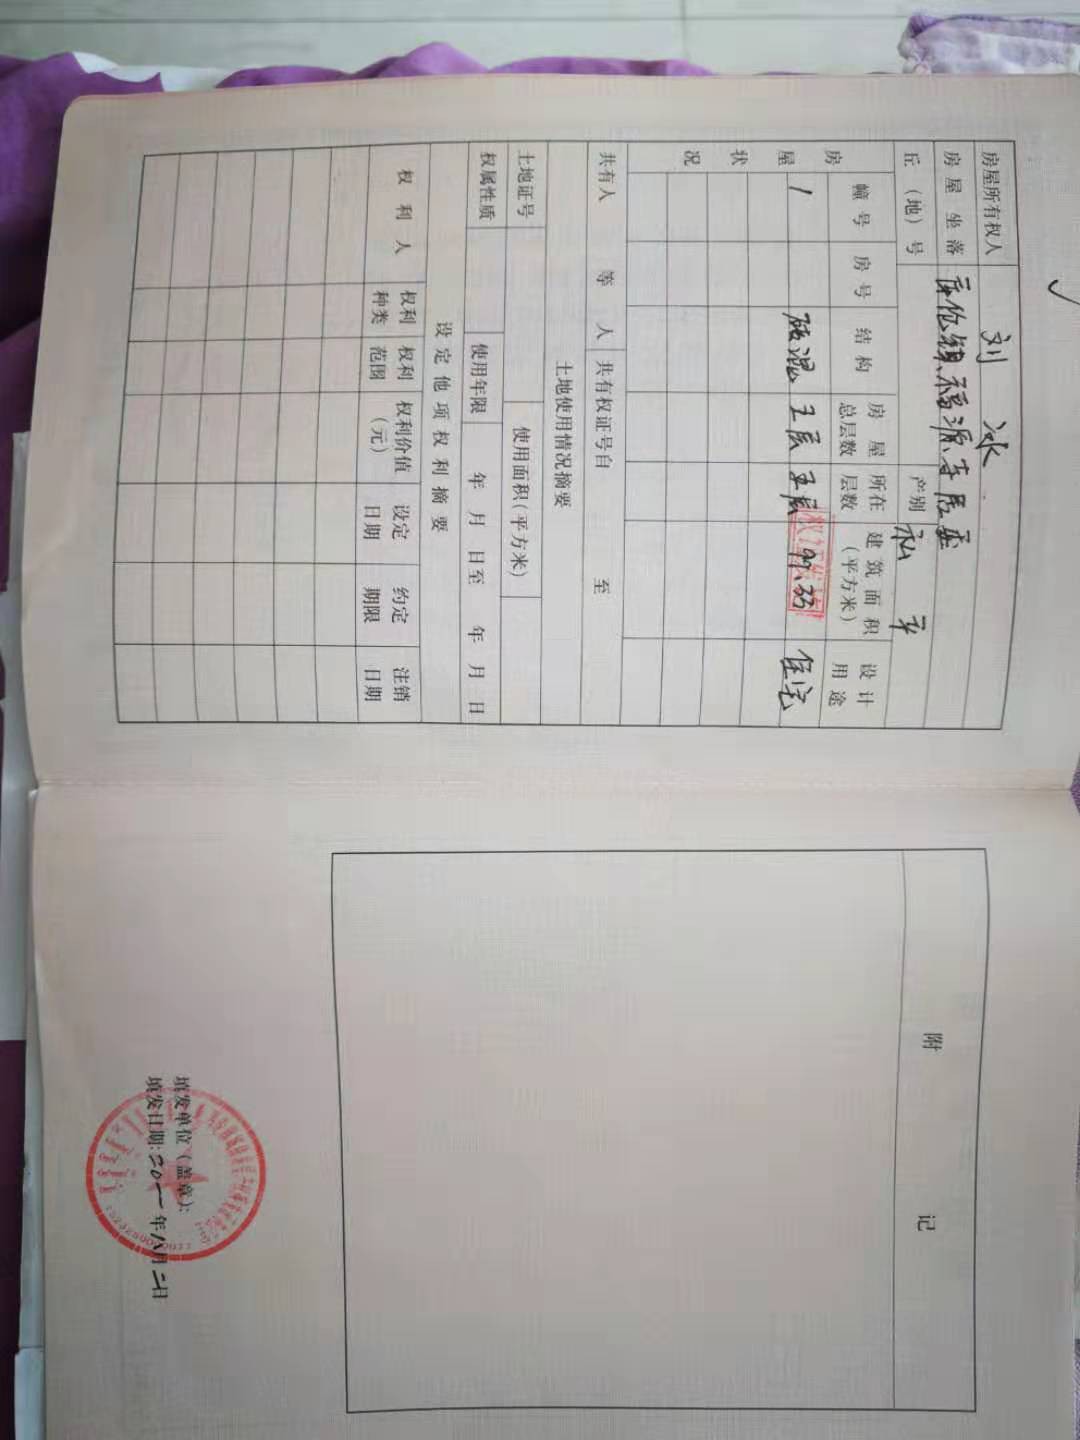 房屋所有权人 刘冰
房屋坐落 库伦镇福源东居委
丘（地）号 产别 私
房屋状况
幢号 房号 结构 房屋总层数 所在层数 建筑面积（平方米） 设计用途
1 砖混 住宅
共有人 等 人 共有权证号自 至
土地使用情况摘要
土地证号 使用面积（平方米）
权属性质 使用年限 年 月 日至 年 月 日
设定他项权利摘要
权利人 权利种类 权利范围 权利价值（元） 设定日期 约定期限 注销日期
附记
填发单位（盖章）：
填发日期: 年 月 日